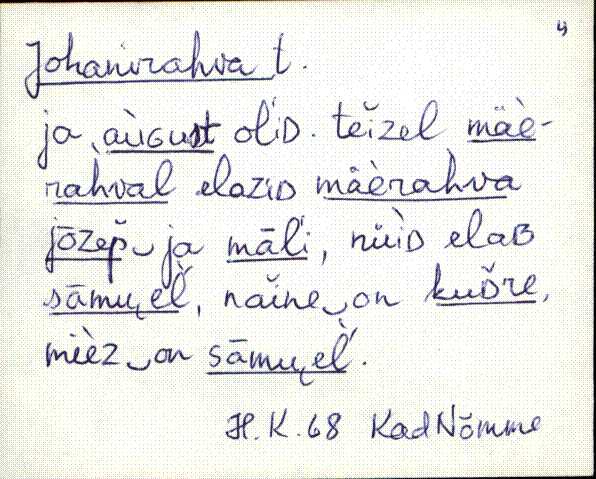 4
Johanirahva t.
ja, aùGust olíD. teĭzel mäè-
ràhval elaziD mäèrahva
jōzep̆‿ja māĺi, nüìD elaB
sāmu̯eľ, naĭne‿on kuŏre,
mìèz‿on sāmu̯eľ.
H.K. 68 KadNõmme